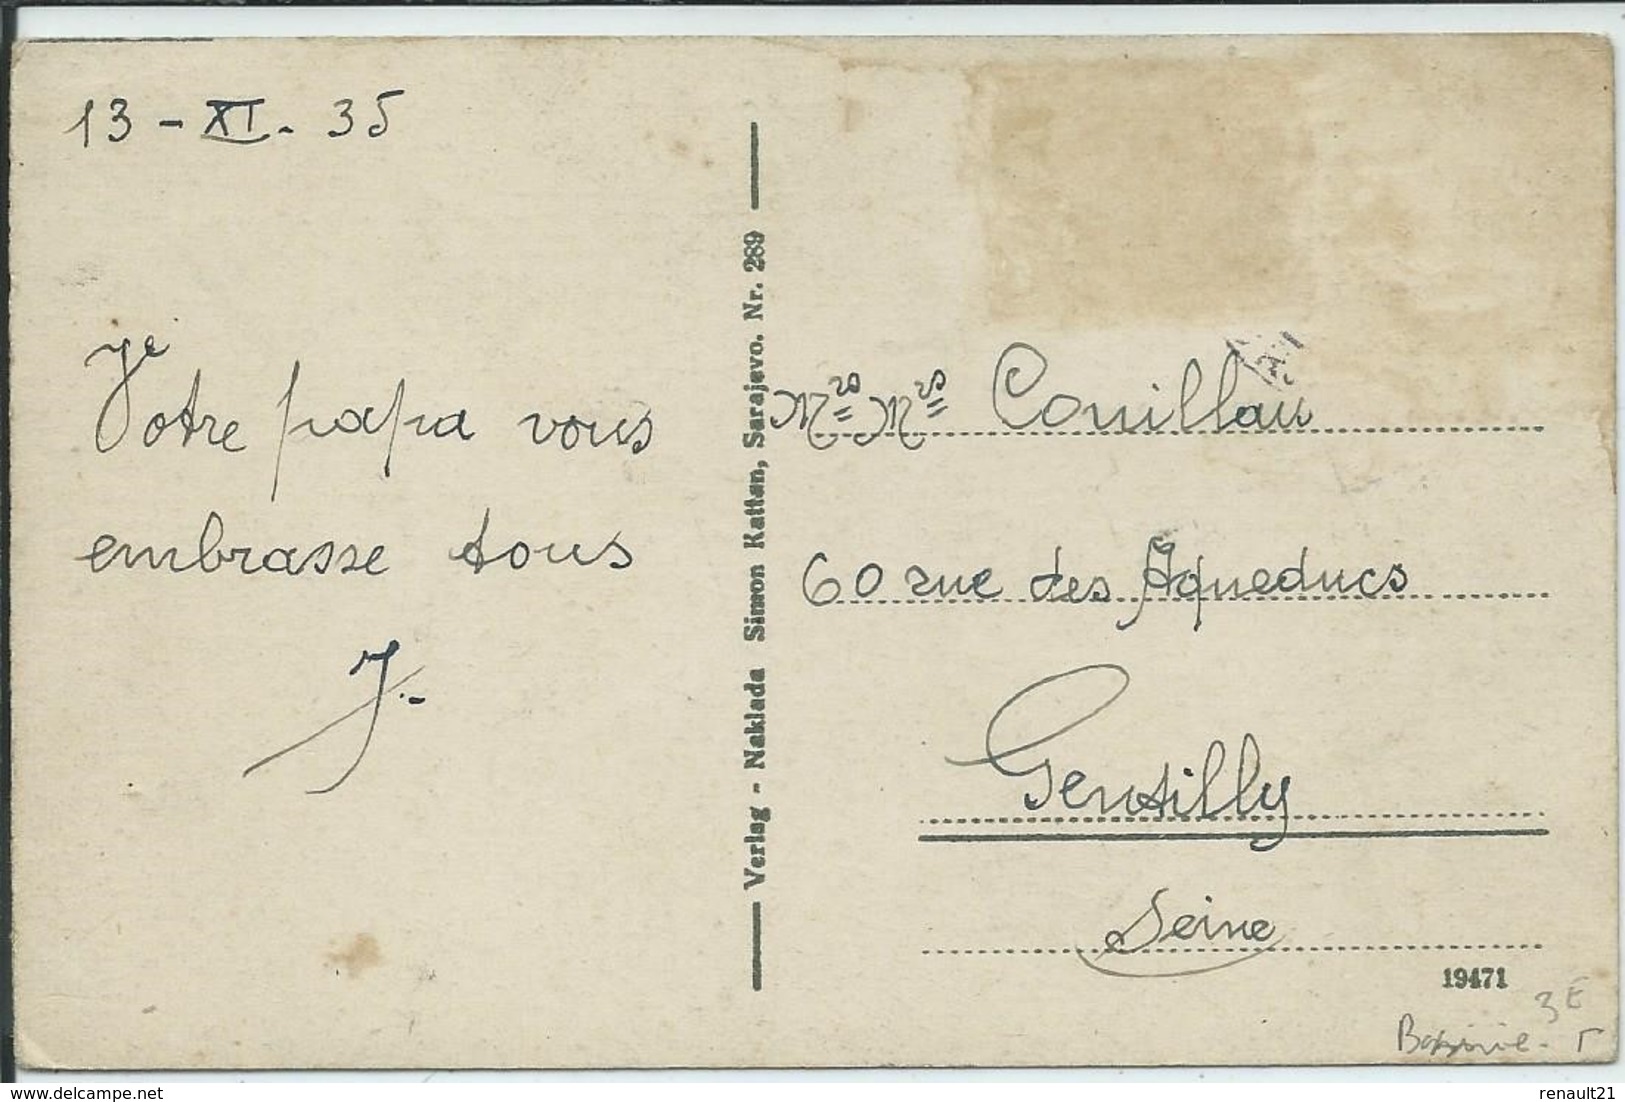 13 - XI - 35
Votre papa vous
embrasse tous
J.
Verlag - Naklada Simon Kattan, Sarajevo. Nr. 289
Mrs Mrs Couillau
60 rue des Aqueducs
Gentilly
Seine
19471
3 E
renault21